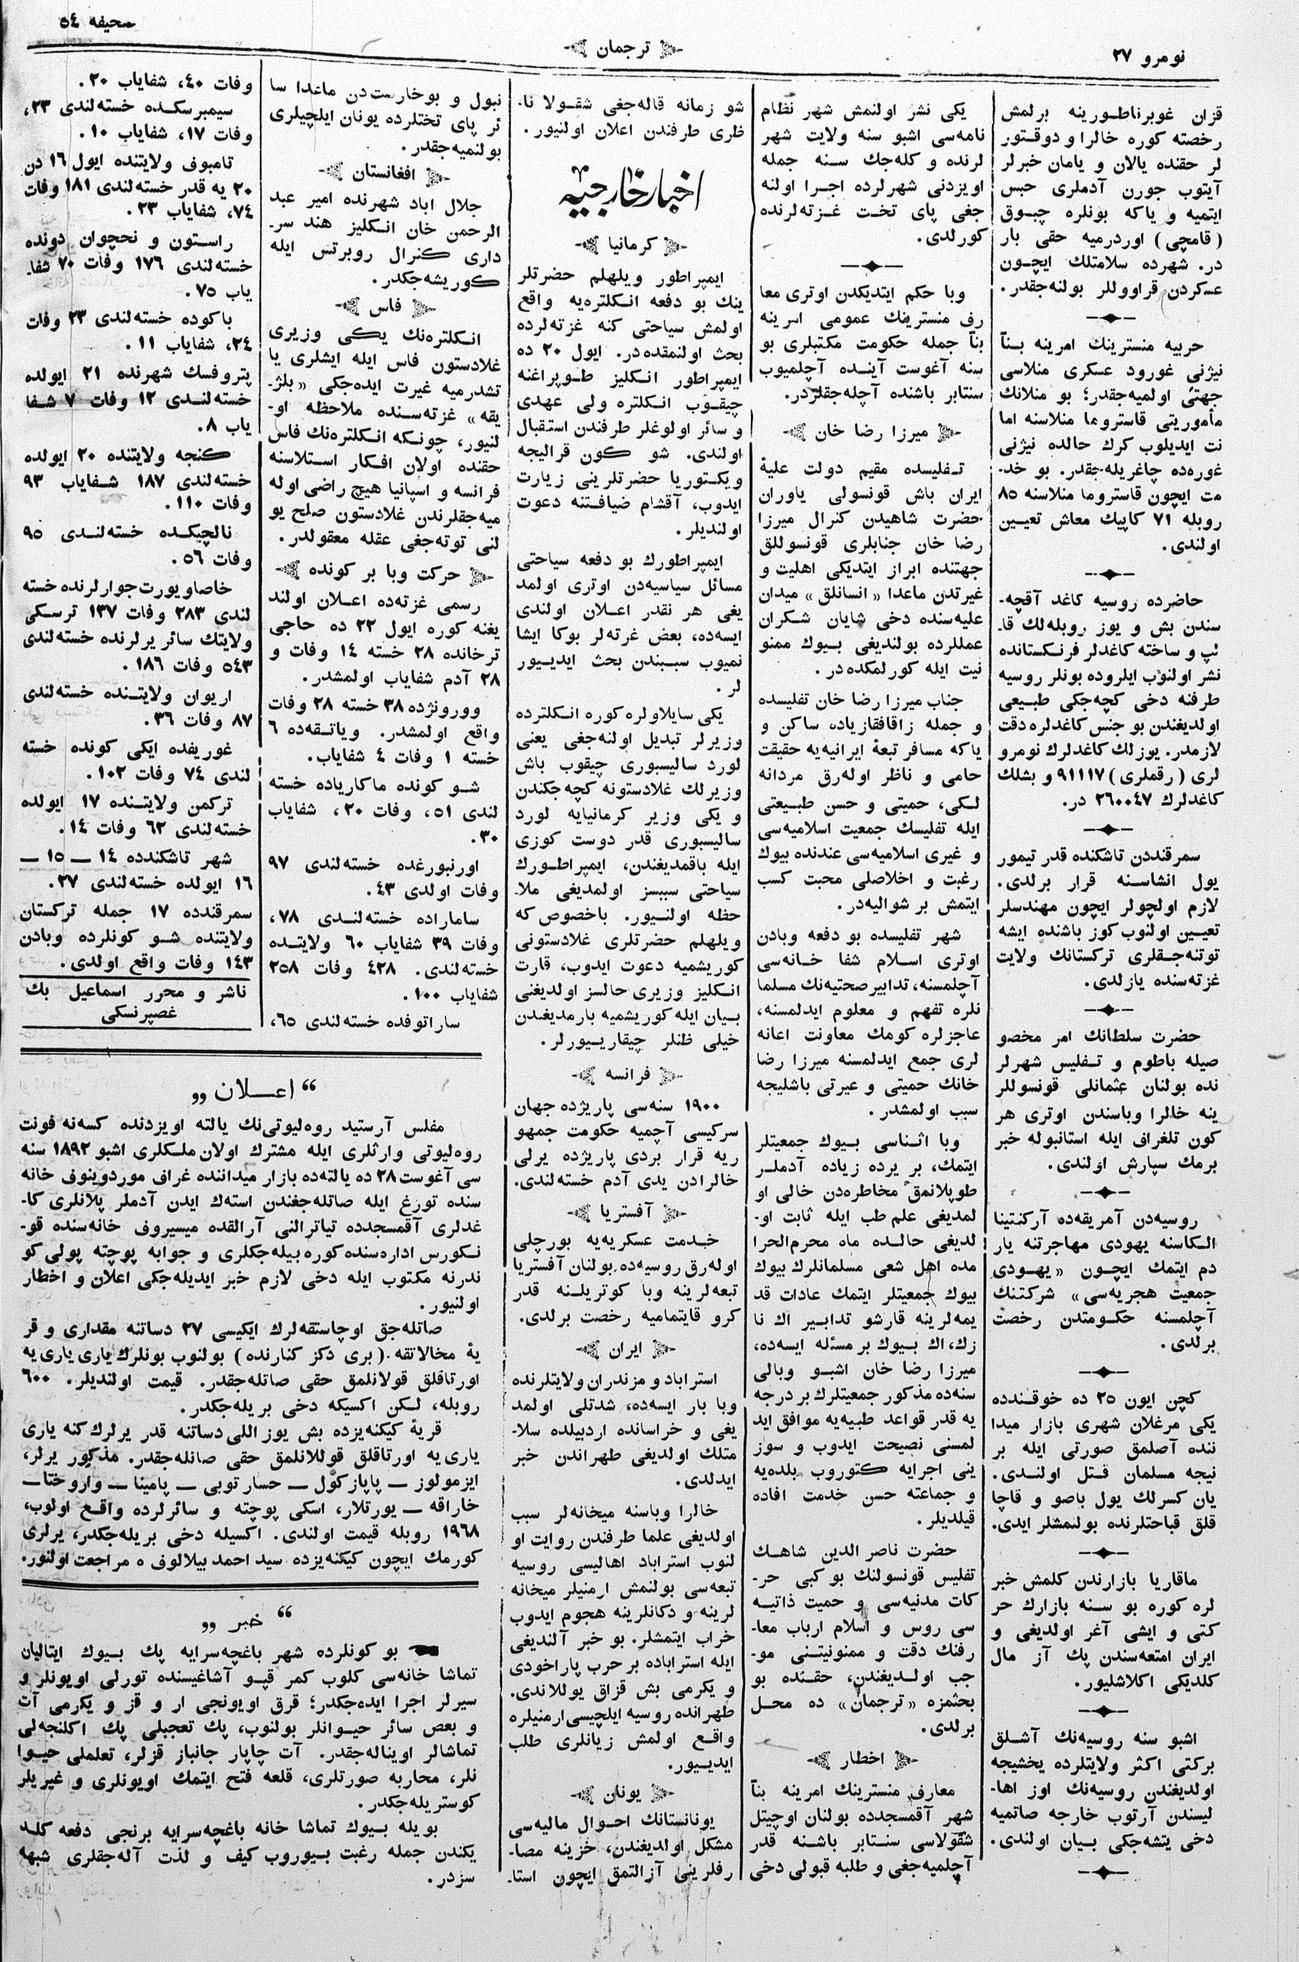 نومرو ۲۷
ترجمان
صحیفه ۵٤
قزان غوبرناطورینه برلمش
رخصته کوره خالرا و دوقتور
لر حقنده یالان و یامان خبرلر
آیتوب جورن آدملری حبس
ایتمیه و یاکه بونلره چبوق
( قامچی ) اوردرمیه حقی بار
در. شهرده سلامتلك ایچون
عسکردن قراووللر بولنه‌جقدر.
حربیه منسترینك امرینه بنأ
نیژنی غورود عسکری منلاسی
جهتی اولمیه‌جقدر؛ بو منلانك
مأموریتی قاستروما منلاسنه اما
نت ایدیلوب کرك حالده نیژنی
غوره‌ده چاغریله‌جقدر. بو خد-
مت ایچون قاستروما منلاسنه ۸۵
روبله ۷۱ کاپیك معاش تعیین
اولندی.
حاضرده روسیه کاغد آقچه-
سندن بش و یوز روبله‌لك قا-
لپ و ساخته کاغدلر فرنکستانده
نشر اولنوب ایلروده بونلر روسیه
طرفنه دخی کچه‌جکی طبیعی
اولدیغندن بو جنس کاغدلره دقت
لازمدر. یوزلك کاغدلرك نومرو
لری ( رقملری ) ۹۱۱۱۷ و بشلك
کاغدلرك ۲٦۰۰٤۷ در.
سمرقنددن تاشکنده قدر تیمور
یول انشاسنه قرار برلدی.
لازم اولچولر ایچون مهندسلر
تعیین اولنوب کوز باشنده ایشه
توتنه‌جقلری ترکستانك ولایت
غزته‌سنده یازلدی.
حضرت سلطانك امر مخصو
صیله باطوم و تفلیس شهرلر
نده بولنان عثمانلی قونسوللر
ینه خالرا وباسندن اوتری هر
کون تلغراف ایله استانبوله خبر
برمك سپارش اولندی.
روسیه‌دن آمریقه‌ده آرکنتینا
الکاسنه یهودی مهاجرتنه یار
دم ایتمك ایچون « یهودی
جمعیت هجریه‌سی » شرکتنك
آچلمسنه حکومتدن رخصت
برلدی.
کچن ایون ۲۵ ده خوقنده‌ده
یکی مرغلان شهری بازار میدا
ننده آصلمق صورتی ایله بر
نیجه مسلمان قتل اولندی.
یان کسرلك یول باصو و قاچا
قلق قباحتلرنده بولنمشلر ایدی.
ماقاریا بازارندن کلمش خبر
لره کوره بو سنه بازارك حر
کتی و ایشی آغر اولدیغی و
ایران امتعه‌سندن پك آز مال
کلدیکی اکلاشلیور.
اشبو سنه روسیه‌نك آشلق
برکتی اکثر ولایتلرده یخشیجه
اولدیغندن روسیه‌نك اوز اها-
لیسندن آرتوب خارجه صاتمیه
دخی یتشه‌جکی بیان اولندی.
یکی نشر اولنمش شهر نظام
نامه‌سی اشبو سنه ولایت شهر
لرنده و کله‌جك سنه جمله
اویزدنی شهرلرده اجرا اولنه
جغی پای تخت غزته‌لرنده
کورلدی.
وبا حکم ایتدیکدن اوتری معا
رف منسترینك عمومی امرینه
بنأ جمله حکومت مکتبلری بو
سنه آغوست آینده آچلمیوب
سنتابر باشنده آچله‌جقلردر.
میرزا رضا خان
تفلیسده مقیم دولت علیۀ
ایران باش قونسولی یاوران
حضرت شاهیدن کنرال میرزا
رضا خان جنابلری قونسوللق
جهتنده ابراز ایتدیکی اهلیت و
غیرتدن ماعدا « انسانلق » میدان
علیه‌سنده دخی شایان شکران
عمللرده بولندیغی بیوك ممنو
نیت ایله کورلمکده در.
جناب میرزا رضا خان تفلیسده
و جمله زاقافقازیاده ساکن و
یاکه مسافر تبعۀ ایرانیه‌یه حقیقت
حامی و ناظر اوله‌رق مردانه
لکی، حمیتی و حسن طبیعتی
ایله تفلیسك جمعیت اسلامیه‌سی
و غیری اسلامیه‌سی عندنده بیوك
رغبت و اخلاصلی محبت کسب
ایتمش بر شوالیه‌در.
شهر تفلیسده بو دفعه وبادن
اوتری اسلام شفا خانه‌سی
آچلمسنه، تدابیر صحتیه‌نك مسلما
نلره تفهم و معلوم ایدلمسنه،
عاجزلره کومك معاونت اعانه
لری جمع ایدلمسنه میرزا رضا
خانك حمیتی و غیرتی باشلیجه
سبب اولمشدر.
وبا اثناسی بیوك جمعیتلر
ایتمك، بر یرده زیاده آدملر
طوپلانمق مخاطره‌دن خالی او
لمدیغی علم طب ایله ثابت او-
لدیغی حالده ماه محرم‌الحرا
مده اهل شعی مسلمانلرك بیوك
بیوك جمعیتلر ایتمك عادات قد
یمه‌لرینه قارشو تدابیر اك نا
زك، اك بیوك بر مسئله ایسه‌ده،
میرزا رضا خان اشبو وبالی
سنه‌ده مذکور جمعیتلرك بر درجه
یه قدر قواعد طبیه‌یه موافق اید
لمسنی نصیحت ایدوب و سوز
ینی اجرایه کتوروب بلده‌یه
و جماعته حسن خدمت افاده
قیلدیلر.
حضرت ناصر الدین شاهك
تفلیس قونسولنك بو کبی حر-
کات مدنیه‌سی و حمیت ذاتیه
سی روس و اسلام ارباب معا-
رفنك دقت و ممنونیتنی مو-
جب اولدیغندن، حقنده بو
بحثمزه « ترجمان » ده محل
برلدی.
اخطار
معارف منسترینك امرینه بنأ
شهر آقمسجدده بولنان اوچیتل
شقولاسی سنتابر باشنه قدر
آچلمیه‌جغی و طلبه قبولی دخی
شو زمانه قاله‌جغی شقولا نا-
ظری طرفندن اعلان اولنیور.
اخبار خارجیه
کرمانیا
ایمپراطور ویلهلم حضرتلر
ینك بو دفعه انکلتره‌یه واقع
اولمش سیاحتی کنه غزته‌لرده
بحث اولنمقده‌در. ایول ۲۰ ده
ایمپراطور انکلیز طوپراغنه
چیقوب انکلتره ولی عهدی
و سائر اولوغلر طرفندن استقبال
اولندی. شو کون قرالیجه
ویکتوریا حضرتلرینی زیارت
ایدوب، آقشام ضیافتنه دعوت
اولندیلر.
ایمپراطورك بو دفعه سیاحتی
مسائل سیاسیه‌دن اوتری اولمد
یغی هر نقدر اعلان اولندی
ایسه‌ده، بعض غزته‌لر بوکا ایشا
نمیوب سببندن بحث ایدیور
لر.
یکی سایلاولره کوره انکلترده
وزیرلر تبدیل اولنه‌جغی یعنی
لورد سالیسبوری چیقوب باش
وزیرلك غلادستونه کچه‌جکندن
و یکی وزیر کرمانیایه لورد
سالیسبوری قدر دوست کوزی
ایله باقمدیغندن، ایمپراطورك
سیاحتی سببسز اولمدیغی ملا-
حظه اولنیور. باخصوص که
ویلهلم حضرتلری غلادستونی
کوریشمیه دعوت ایدوب، قارت
انکلیز وزیری حالسز اولدیغنی
بیان ایله کوریشمیه بارمدیغندن
خیلی ظنلر چیقاریورلر.
فرانسه
۱۹۰۰ سنه‌سی پاریژده جهان
سرکیسی آچمیه حکومت جمهو
ریه قرار بردی پاریژده یرلی
خالرادن یدی آدم خسته‌لندی.
آفستریا
خدمت عسکریه‌یه بورچلی
اوله‌رق روسیه‌ده بولنان آفستریا
تبعه‌لرینه وبا کوتریلنه قدر
کرو قایتمامیه رخصت برلدی.
ایران
استراباد و مزندران ولایتلرنده
وبا بار ایسه‌ده، شدتلی اولمد
یغی و خراسانده اردبیلده سلا-
متلك اولدیغی طهراندن خبر
ایدلدی.
خالرا وباسنه میخانه‌لر سبب
اولدیغی علما طرفندن روایت او
لنوب استراباد اهالیسی روسیه
تبعه‌سی بولنمش ارمنیلر میخانه
لرینه و دکانلرینه هجوم ایدوب
خراب ایتمشلر. بو خبر آلندیغی
ایله استراباده بر حرب پاراخودی
و یکرمی بش قزاق یوللاندی.
طهرانده روسیه ایلچیسی ارمنیلره
واقع اولمش زیانلری طلب
ایدییور.
یونان
یونانستانك احوال مالیه‌سی
مشکل اولدیغندن، خزینه مصا-
رفلرینی آزالتمق ایچون استا-
نبول و بوخارست‌دن ماعدا سا
ئر پای تختلرده یونان ایلچیلری
بولنمیه‌جقدر.
افغانستان
جلال اباد شهرنده امیر عبد
الرحمن خان انکلیز هند سر-
داری کنرال روبرتس ایله
کوریشه‌جکدر.
فاس
انکلتره‌نك یکی وزیری
غلادستون فاس ایله ایشلری یا
تشدرمیه غیرت ایده‌جکی « بلژ-
یقه » غزته‌سنده ملاحظه او-
لنیور، چونکه انکلتره‌نك فاس
حقنده اولان افکار استلاسنه
فرانسه و اسپانیا هیچ راضی اوله
میه‌جقلرندن غلادستون صلح یو
لنی توته‌جغی عقله معقولدر.
حرکت وبا بر کونده
رسمی غزته‌ده اعلان اولند
یغنه کوره ایول ۲۲ ده حاجی
ترخانده ۲۸ خسته ۱٤ وفات و
۲۸ آدم شفایاب اولمشدر.
وورونژده ۳۸ خسته ۲۸ وفات
واقع اولمشدر. ویاتقه‌ده ٦
خسته ۱ وفات ٤ شفایاب.
شو کونده ماکاریاده خسته
لندی ۵۱، وفات ۲۰، شفایاب
۳۰.
اورنبورغده خسته‌لندی ۹۷
وفات اولدی ٤۳.
ساماراده خسته‌لندی ۷۸،
وفات ۳۹ شفایاب ٦۰ ولایتده
خسته‌لندی. ٤۲۸ وفات ۲۵۸
شفایاب ۱۰۰.
ساراتوفده خسته‌لندی ٦۵،
وفات ٤۰، شفایاب ۲۰.
سیمبرسکده خسته‌لندی ۲۳،
وفات ۱۷، شفایاب ۱۰.
تامبوف ولایتنده ایول ۱٦ دن
۲۰ یه قدر خسته‌لندی ۱۸۱ وفات
۷٤، شفایاب ۲۳.
راستون و نحچوان دونده
خسته‌لندی ۱۷٦ وفات ۷۰ شفا-
یاب ۷۵.
باکوده خسته‌لندی ۲۳ وفات
۲٤، شفایاب ۱۱.
پتروفسك شهرنده ۲۱ ایولده
خسته‌لندی ۱۲ وفات ۷ شفا
یاب ۸.
کنجه ولایتنده ۲۰ ایولده
خسته‌لندی ۱۸۷ شفایاب ۹۳
وفات ۱۱۰.
نالچیکده خسته‌لندی ۹۵
وفات ۵٦.
خاصاویورت جوارلرنده خسته
لندی ۲۸۳ وفات ۱۳۷ ترسکی
ولایتك سائر یرلرنده خسته‌لندی
۵٤۳ وفات ۱۸٦.
اریوان ولایتنده خسته‌لندی
۸۷ وفات ۳٦.
غوریفده ایکی کونده خسته
لندی ۷٤ وفات ۱۰۲.
ترکمن ولایتنده ۱۷ ایولده
خسته‌لندی ٦۲ وفات ۱٤.
شهر تاشکندده ۱٤ — ۱۵ —
۱٦ ایولده خسته‌لندی ۲۷.
سمرقندده ۱۷ جمله ترکستان
ولایتنده شو کونلرده وبادن
۱٤۳ وفات واقع اولدی.
ناشر و محرر اسماعیل بك
غصپرنسکی
“ اعلان „
مفلس آرستید روه‌لیوتی‌نك یالته اویزدنده کسه‌نه فونت
روه‌لیوتی وارثلری ایله مشترك اولان ملکلری اشبو ۱۸۹۲ سنه
سی آغوست ۲۸ ده یالته‌ده بازار میداننده غراف موردوینوف خانه
سنده تورغ ایله صاتله‌جغندن استه‌ك ایدن آدملر پلانلری کا-
غدلری آقمسجدده تیاترالنی آرالقده میسیروف خانه‌سنده قو-
نکورس اداره‌سنده کوره بیله‌جکلری و جوابه پوچته پولی کو
ندرنه مکتوب ایله دخی لازم خبر ایدیله‌جکی اعلان و اخطار
اولنیور.
صاتله‌جق اوچاستقه‌لرك ایکیسی ۲۷ دساتنه مقداری و قر
یۀ مخالاتقه. ( بری دکز کنارنده ) بولنوب بونلرك یاری یاری یه
اورتاقلق قولانلمق حقی صاتله‌جقدر. قیمت اولندیلر. ٦۰۰
روبله، لکن اکسیکه دخی بریله‌جکدر.
قریۀ کیکنه‌یزده بش یوز اللی دساتنه قدر یرلرك کنه یاری
یاری یه اورتاقلق قوللانلمق حقی صاتله‌جقدر. مذکور یرلر،
ایزمولوز — پاپازکول — حسار توبی — پامینا — واروختا —
خاراقه — یورتلار، اسکی پوچته و سائرلرده واقع اولوب،
۱۹٦۸ روبله قیمت اولندی. اکسیله دخی بریله‌جکدر، یرلری
کورمك ایچون کیکنه‌یزده سید احمد بیلالوف ه مراجعت اولنور.
“ خبر „
بو کونلرده شهر باغچه‌سرایه پك بیوك ایتالیان
تماشا خانه‌سی کلوب کمر قپو آشاغیسنده تورلی اویونلر و
سیرلر اجرا ایده‌جکدر؛ قرق اویونجی ار و قز و یکرمی آت
و بعض سائر حیوانلر بولنوب، پك تعجبلی پك اکلنجه‌لی
تماشالر اویناله‌جقدر. آت چاپار جانباز قزلر، تعلملی حیوا
نلر، محاربه صورتلری، قلعه فتح ایتمك اویونلری و غیریلر
کوستریله‌جکدر.
بویله بیوك تماشا خانه باغچه‌سرایه برنجی دفعه کلد
یکندن جمله رغبت بیوروب کیف و لذت آله‌جقلری شبهه
سزدر.